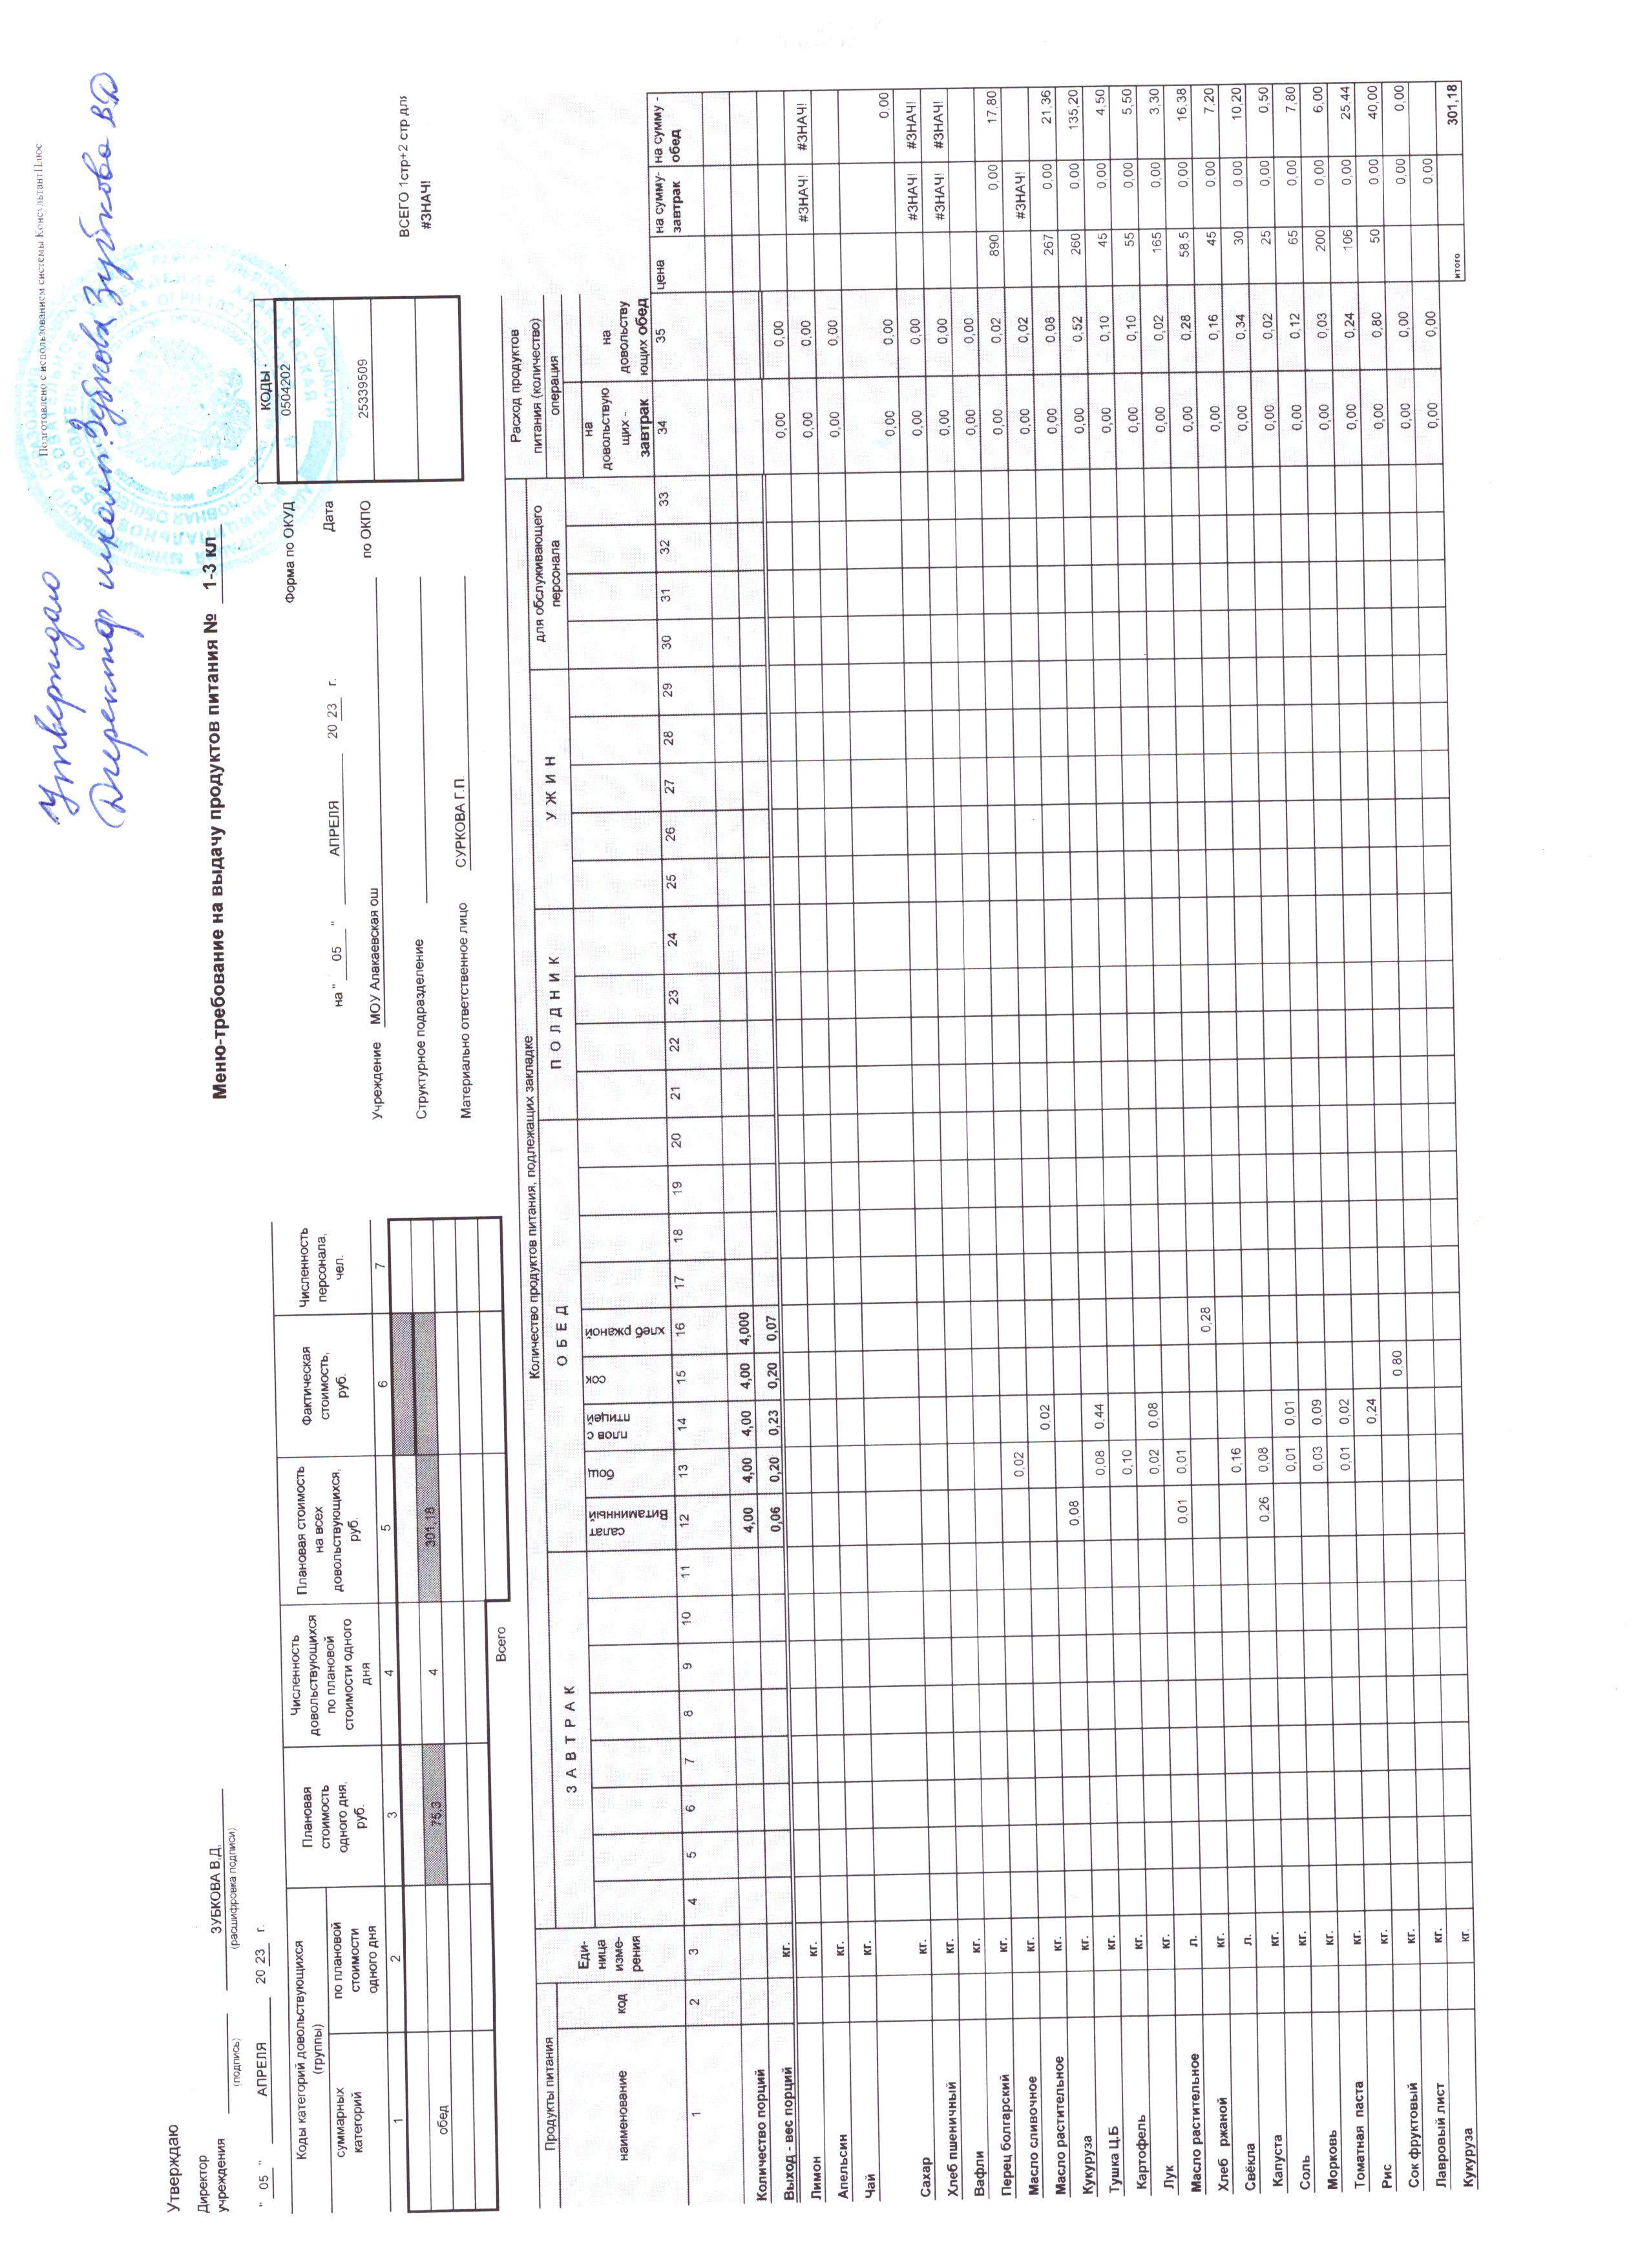 Подготовлено с использованием системы КонсультантПлюс
Утверждаю
Директор школы: Зубкова Зубкова ВД
Утверждаю
Директор
учреждения ЗУБКОВА В.Д.
(подпись) (расшифровка подписи)
" 05 " АПРЕЛЯ 20 23 г.
Меню-требование на выдачу продуктов питания № 1-3 кл
КОДЫ
Форма по ОКУД 0504202
на " 05 " АПРЕЛЯ 20 23 г. Дата
Учреждение МОУ Алакаевская ош по ОКПО 25339509
Структурное подразделение
Материально ответственное лицо СУРКОВА Г.П
ВСЕГО 1стр+2 стр для
#ЗНАЧ!
Коды категорий довольствующихся (группы)
суммарных категорий
по плановой стоимости одного дня
Плановая стоимость одного дня, руб.
Численность довольствующихся по плановой стоимости одного дня
Плановая стоимость на всех довольствующихся, руб.
Фактическая стоимость, руб.
Численность персонала, чел.
1 2 3 4 5 6 7
обед 75,3 4 301,18
Всего
Продукты питания
Еди-ница изме-рения
Количество продуктов питания, подлежащих закладке
Расход продуктов питания (количество)
З А В Т Р А К О Б Е Д П О Л Д Н И К У Ж И Н для обслуживающего персонала операция
наименование код салат Витаминный, бощ плов с птицей, сок хлеб ржаной, на довольствую щих - завтрак на довольству ющих обед цена на сумму- завтрак на сумму - обед
1 2 3 4 5 6 7 8 9 10 11 12 13 14 15 16 17 18 19 20 21 22 23 24 25 26 27 28 29 30 31 32 33 34 35
Количество порций 4,00 4,00 4,00 4,00 4,000
Выход - вес порций кг. 0,06 0,20 0,23 0,20 0,07
Лимон кг. 0,00 0,00
Апельсин кг. 0,00 0,00 #ЗНАЧ! #ЗНАЧ!
Чай кг. 0,00 0,00
0,00 0,00 0,00
Сахар кг. 0,00 0,00 #ЗНАЧ! #ЗНАЧ!
Хлеб пшеничный кг. 0,00 0,00 #ЗНАЧ! #ЗНАЧ!
Вафли кг. 0,00 0,00
Перец болгарский кг. 0,02 0,00 0,02 890 0,00 17,80
Масло сливочное кг. 0,02 0,00 0,02 #ЗНАЧ!
Масло растительное кг. 0,08 0,00 0,08 267 0,00 21,36
Кукуруза кг. 0,08 0,44 0,00 0,52 260 0,00 135,20
Тушка Ц.Б кг. 0,10 0,00 0,10 45 0,00 4,50
Картофель кг. 0,02 0,08 0,00 0,10 55 0,00 5,50
Лук кг. 0,01 0,01 0,00 0,02 165 0,00 3,30
Масло растительное л. 0,28 0,00 0,28 58,5 0,00 16,38
Хлеб ржаной кг. 0,16 0,00 0,16 45 0,00 7,20
Свёкла л. 0,26 0,08 0,00 0,34 30 0,00 10,20
Капуста кг. 0,01 0,01 0,00 0,02 25 0,00 0,50
Соль кг. 0,03 0,09 0,00 0,12 65 0,00 7,80
Морковь кг. 0,01 0,02 0,00 0,03 200 0,00 6,00
Томатная паста кг. 0,24 0,00 0,24 106 0,00 25,44
Рис кг. 0,80 0,00 0,80 50 0,00 40,00
Сок фруктовый кг. 0,00 0,00 0,00 0,00
Лавровый лист кг. 0,00 0,00 0,00
Кукуруза кг. итого 301,18